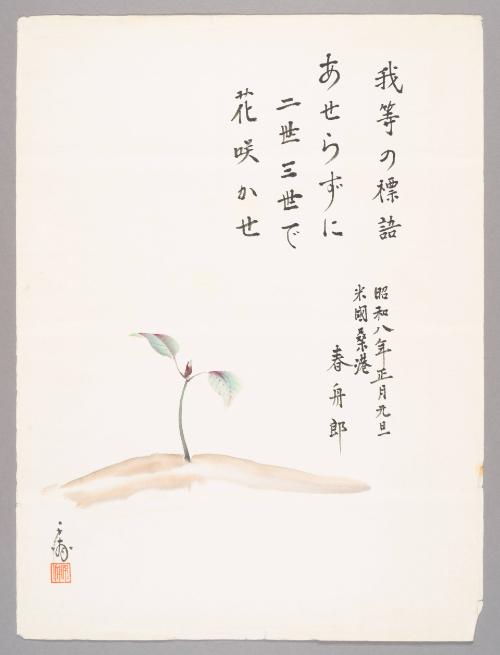 我等の標語
あせらずに
二世三世で
花咲かせ
昭和八年正月元旦
米國桑港
春舟郎